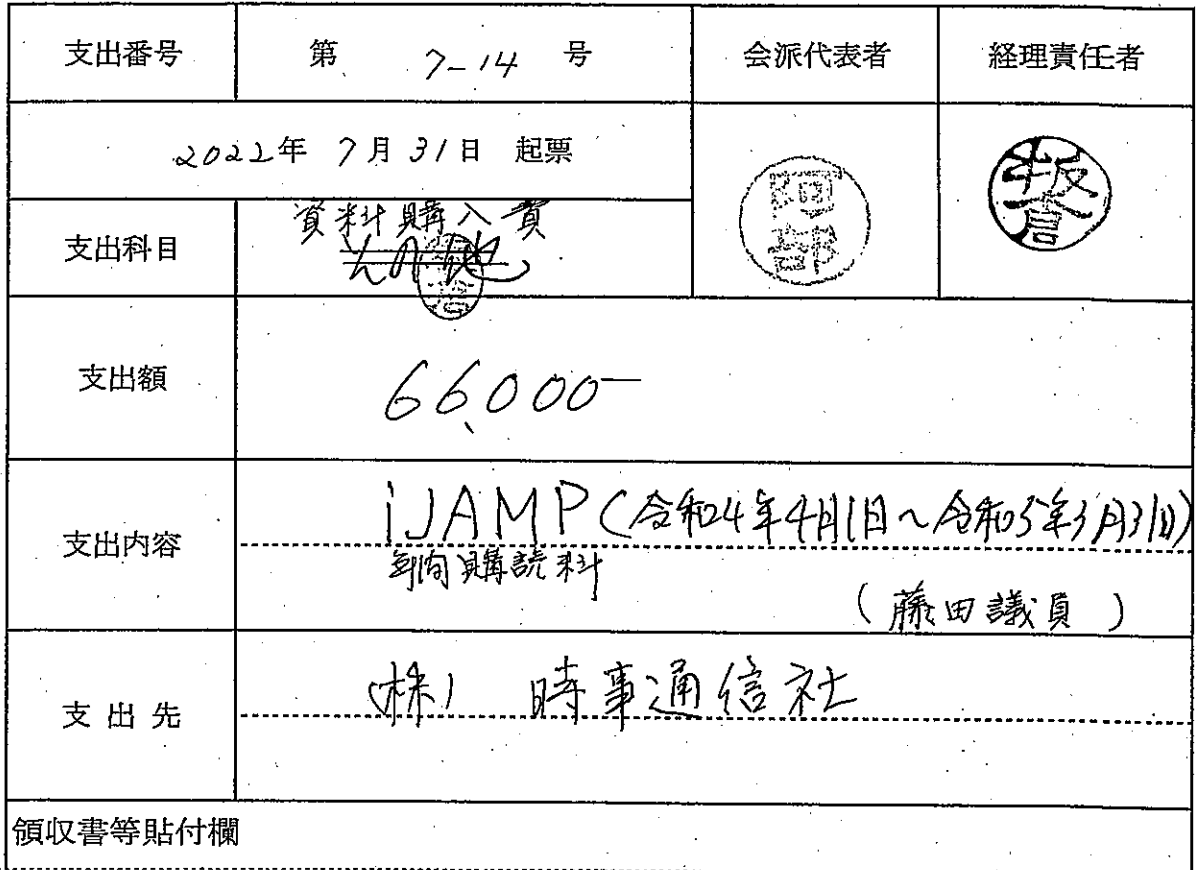 支出番号 第 7-14 号 会派代表者 経理責任者
2022年 7月 31日 起票
阿部
板倉
資料購入費
支出科目 その他
支出額 66,000-
支出内容 iJAMP(令和4年4月1日~令和5年3月31日)
年間購読料
(藤田議員)
支出先 (株) 時事通信社
領収書等貼付欄